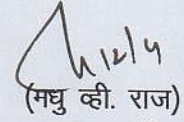 (मधु व्ही. राज)